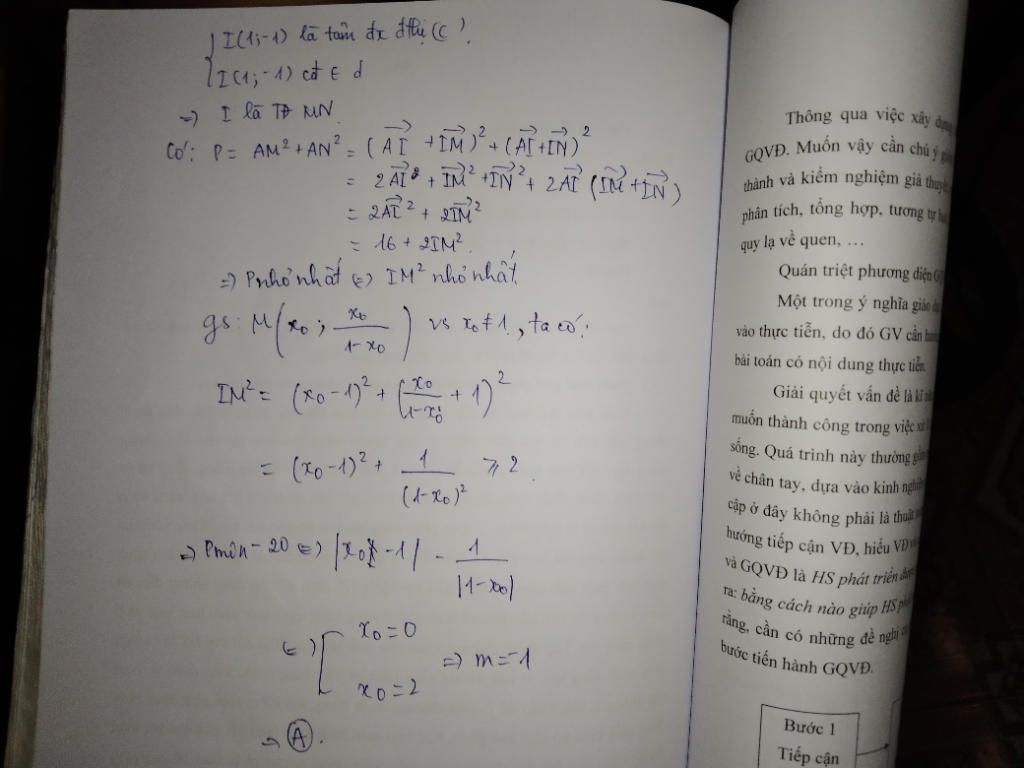 I(1;-1) là tâm đx đthị (C).
I(1;-1) cđ ∈ d
=> I là TĐ MN.
Có: P = AM² + AN² = (AI + IM)² + (AI + IN)²
= 2AI² + IM² + IN² + 2AI (IM + IN)
= 2AI² + 2IM²
= 16 + 2IM².
=> P nhỏ nhất <=> IM² nhỏ nhất.
gs: M(x0; x0/(1-x0)) vs x0 ≠ 1, ta có:
IM² = (x0-1)² + (x0/(1-x0) + 1)²
= (x0-1)² + 1/(1-x0)² ≥ 2.
=> Pmin = 20 <=> |x0-1| = 1/|1-x0|
<=> [ x0 = 0
x0 = 2 => m = -1
=> A.
Thông qua việc xây dựng
GQVĐ. Muốn vậy cần chú ý
thành và kiểm nghiệm giả thuyết
phân tích, tổng hợp, tương tự
quy lạ về quen, …
Quán triệt phương diện
Một trong ý nghĩa giáo
vào thực tiễn, do đó GV cần
bài toán có nội dung thực tiễn.
Giải quyết vấn đề là kĩ
muốn thành công trong việc
sống. Quá trình này thường
về chân tay, dựa vào kinh
cập ở đây không phải là thuật
hướng tiếp cận VĐ, hiểu VĐ
và GQVĐ là HS phát triển
ra: bằng cách nào giúp HS
rằng, cần có những đề nghị
bước tiến hành GQVĐ.
Bước 1
Tiếp cận